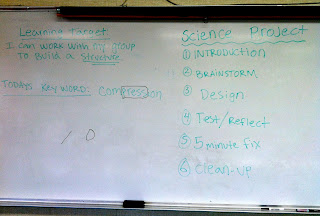 Learning Target
I can work with my group
to Build a Structure.
TODAYS KEY WORD: Compression
Science Project
① INTRODUCTION
② BRAINSTORM
③ Design
④ Test/Reflect
⑤ 5 minute fix
⑥ Clean-up